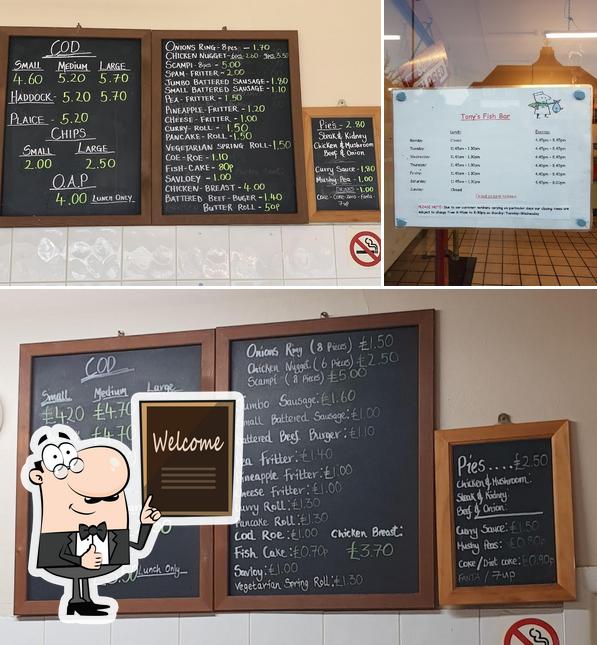 COD
SMALL MEDIUM LARGE
4.60 5.20 5.70
HADDOCK- 5.20 5.70
PLAICE - 5.20
CHIPS
SMALL LARGE
2.00 2.50
O.A.P
4.00 LUNCH ONLY
ONIONS RING - 8pcs - 1.70
CHICKEN NUGGET - 6pcs 2.60 - 9pcs 3.50
SCAMPI - 8pcs - 5.00
SPAM - FRITTER - 2.00
JUMBO BATTERED SAUSAGE - 1.80
SMALL BATTERED SAUSAGE - 1.10
PEA - FRITTER - 1.50
PINEAPPLE - FRITTER - 1.20
CHEESE - FRITTER - 1.00
CURRY - ROLL - 1.50
PANCAKE - ROLL - 1.50
VEGETARIAN SPRING ROLL - 1.50
COE - ROE - 1.10
FISH - CAKE - 80p
SAVLOEY - 1.00
CHICKEN - BREAST - 4.00
BATTERED BEEF - BUGER - 1.40
BUTTER ROLL - 50p
Pies - 2.80
Steak & Kidney
Chicken & Mushroom
Beef & Onion
Curry Sauce - 1.80
Mushy Pea - 1.00
DRINKS - 1.00
Coke - Coke Zero - Fanta -
7up
Tony's Fish Bar
Lunch: Evening:
Monday Closed
Tuesday
Wednesday
Thursday
Friday
Saturday
Sunday Closed
COD
Small Medium Large
£4.20 £4.70
£4.70
Lunch Only
Onions Ring (8 Pieces) £1.50
Chicken Nugget (6 Pieces) £2.50
Scampi (8 Pieces) £5.00
umbo Sausage: £1.60
mall Battered Sausage: £1.00
attered Beef Burger: £1.10
ea Fritter: £1.40
ineapple Fritter: £1.00
heese Fritter: £1.00
urry Roll: £1.30
ancake Roll: £1.30
Cod Roe: £1.00 Chicken Breast:
Fish Cake: £0.70p £3.70
Savloy: £1.00
Vegetarian Spring Roll: £1.30
Pies....£2.50
Chicken & Mushroom
Steak & Kidney
Beef & Onion
Curry Sauce: £1.50
Mushy Peas: £0.90p
Coke / Diet coke: £0.90p
FANTA / 7up
Welcome